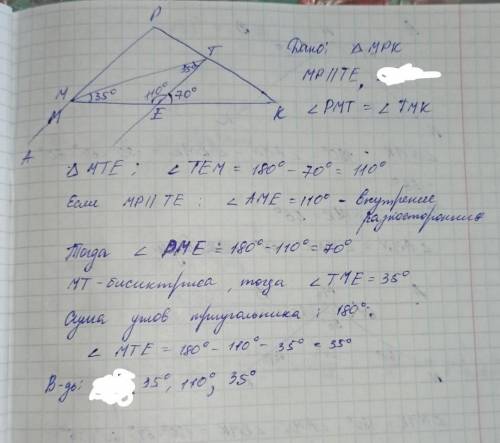 P
T
35°
M
M
35°
110°
70°
E
K
A
Дано: △ MPK
MP || TE,
∠ PMT = ∠ TMK
△ MTE; ∠ TEM = 180° - 70° = 110°
Если MP || TE: ∠ AME = 110° - внутренние
разносторонние
Тогда ∠ PME = 180° - 110° = 70°
MT - бисиктриса, тогда ∠ TME = 35°
Сума углов триугольника: 180°.
∠ MTE = 180° - 110° - 35° = 35°
В-дь: 35°, 110°, 35°